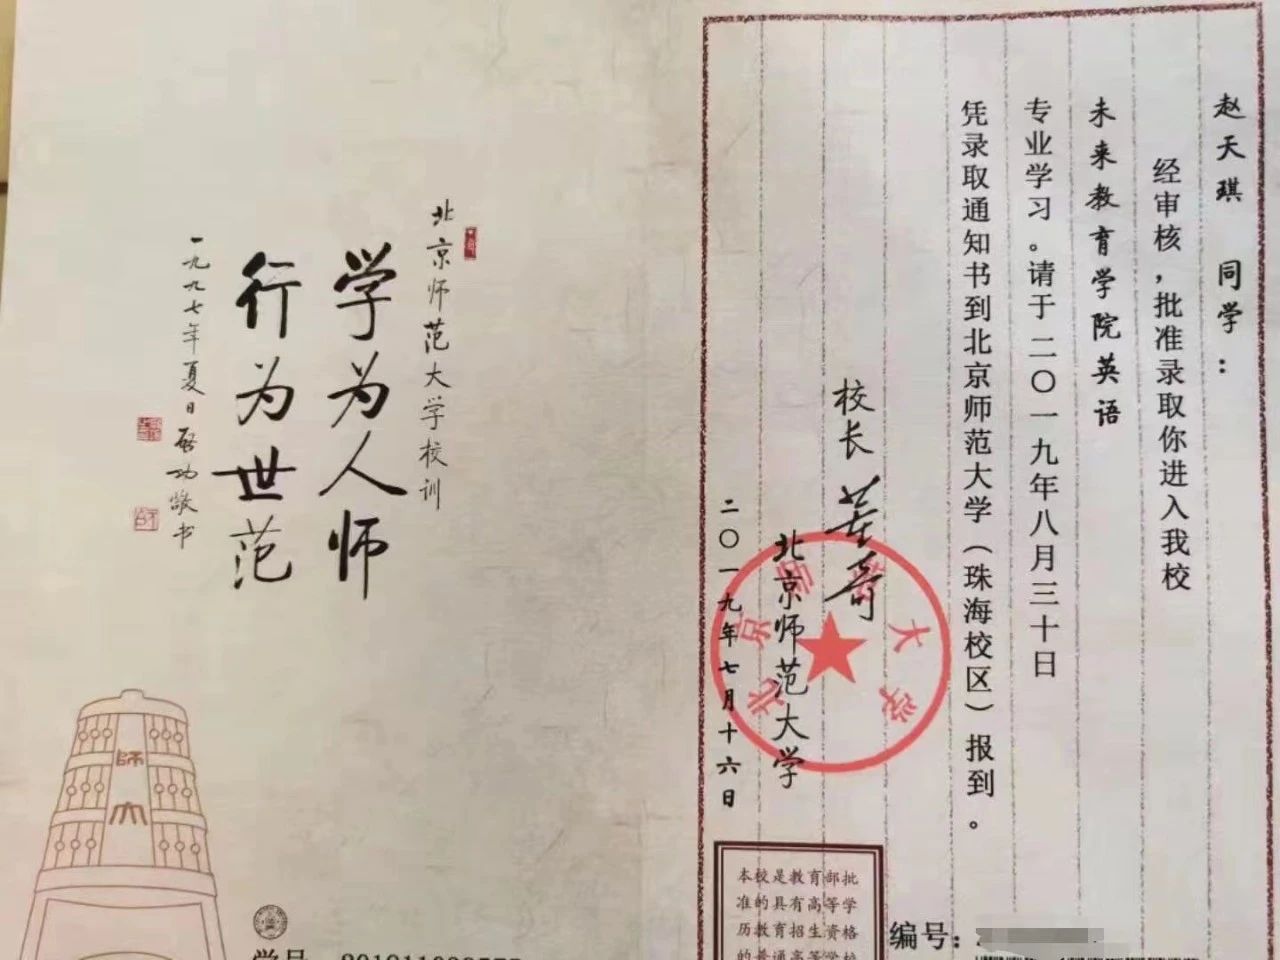 赵天琪 同学：
经审核，批准录取你进入我校
未来教育学院英语
专业学习。请于二〇一九年八月三十日
凭录取通知书到北京师范大学（珠海校区）报到。
校长 董奇
北京师范大学
二〇一九年七月十六日
北京师范大学
本校是教育部批
准的具有高等学
历教育招生资格
的普通高等学校
编号：
北京师范大学校训
学为人师
行为世范
一九九七年夏日启功敬书
師大
学号